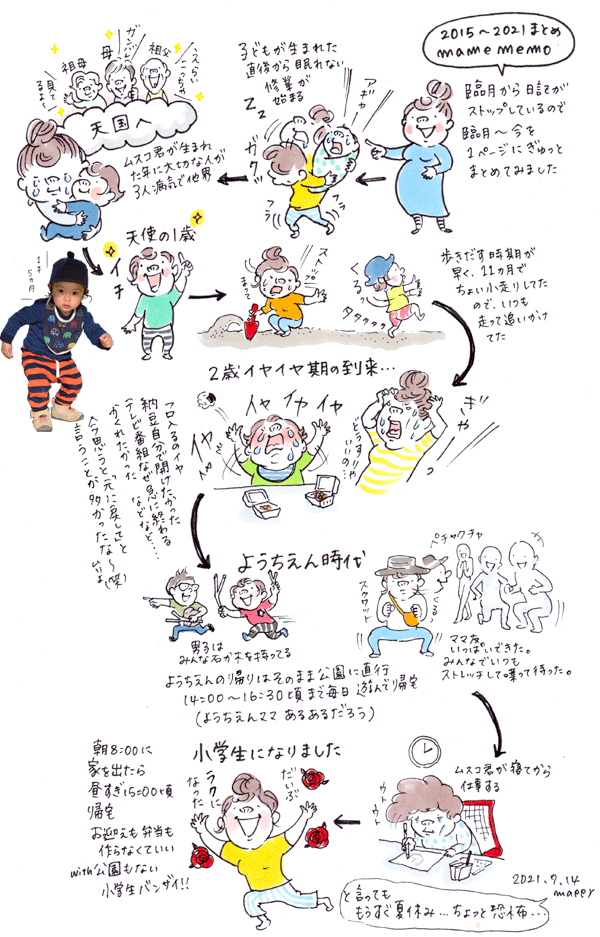 2015～2021まとめ
mamememo
臨月から日記が
ストップしているので
臨月～今を
1ページにぎゅっと
まとめてみました
子どもが生まれた
直後から眠れない
修業が
始まる
アギャー
ZZ
ガクッ
フラ
フラ
祖母
母
祖父
ガンバレ
見てるよ
天国へ
ムスコ君が生まれ
た年に大切な人が
3人病気で他界
天使の1歳
イチ
1才
5ヵ月
まって
くるっ
タタタタタ
歩きだす時期が
早く、11ヵ月で
ちょい小走りしてた
ので、いつも
走って追いかけ
てた
2歳イヤイヤ期の到来…
イヤイヤイヤ
イヤイヤ
どうすりゃ
いいの…
ぎゃーっ
フロ入るのイヤ
納豆自分で開けたかった
テレビ番組なぜ急に終わる
かくれたかった などなど…
今思うと「元に戻して」と
言うことが多かったな～(笑)
ようちえん時代
男子は
みんな石か木を持ってる
スクワット
ペチャクチャ
ママ友
いっぱいできた。
みんなでいつも
ストレッチして喋って待った。
ようちえんの帰りはそのまま公園に直行
14:00～16:30頃まで毎日遊んで帰宅
(ようちえんママあるあるだろう)
ムスコ君が寝てから
仕事する
ウトウト
小学生になりました
だいぶ
ラクに
なった
朝8:00に
家を出たら
昼すぎ15:00頃
帰宅
お迎えも弁当も
作らなくていい
with公園もない
小学生バンザイ!!
2021.7.14
mappy
と言っても
もうすぐ夏休み…ちょっと恐怖…